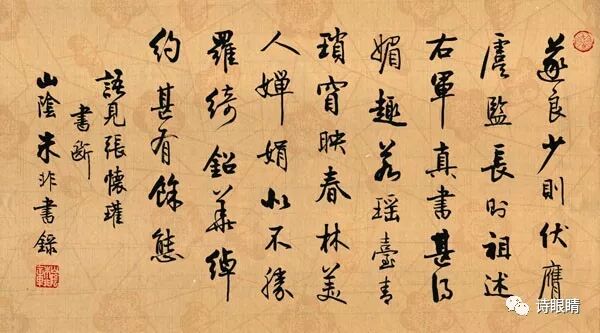 遂良少則伏膺
虞監長則祖述
右軍真書甚得
媚趣若瑶臺青
瑣窅映春林美
人嬋娟似不勝
羅綺鉛華綽
約甚有餘態
語見張懷瓘
書斷
山陰朱非書錄
诗眼睛